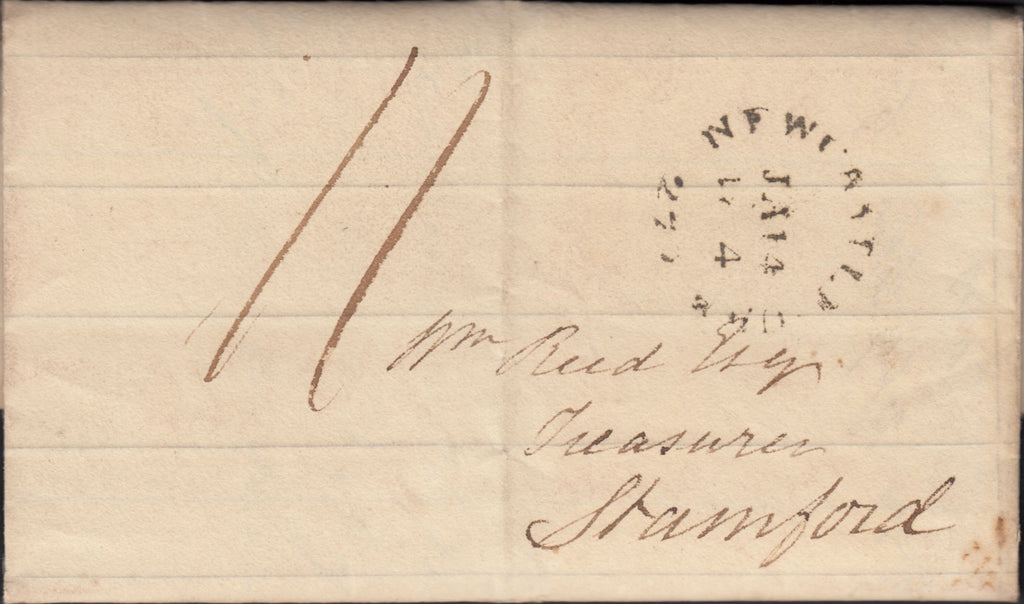 11
NEWCASTLE
JA 14
4
Wm Reed Esqr
Treasurer
Stamford